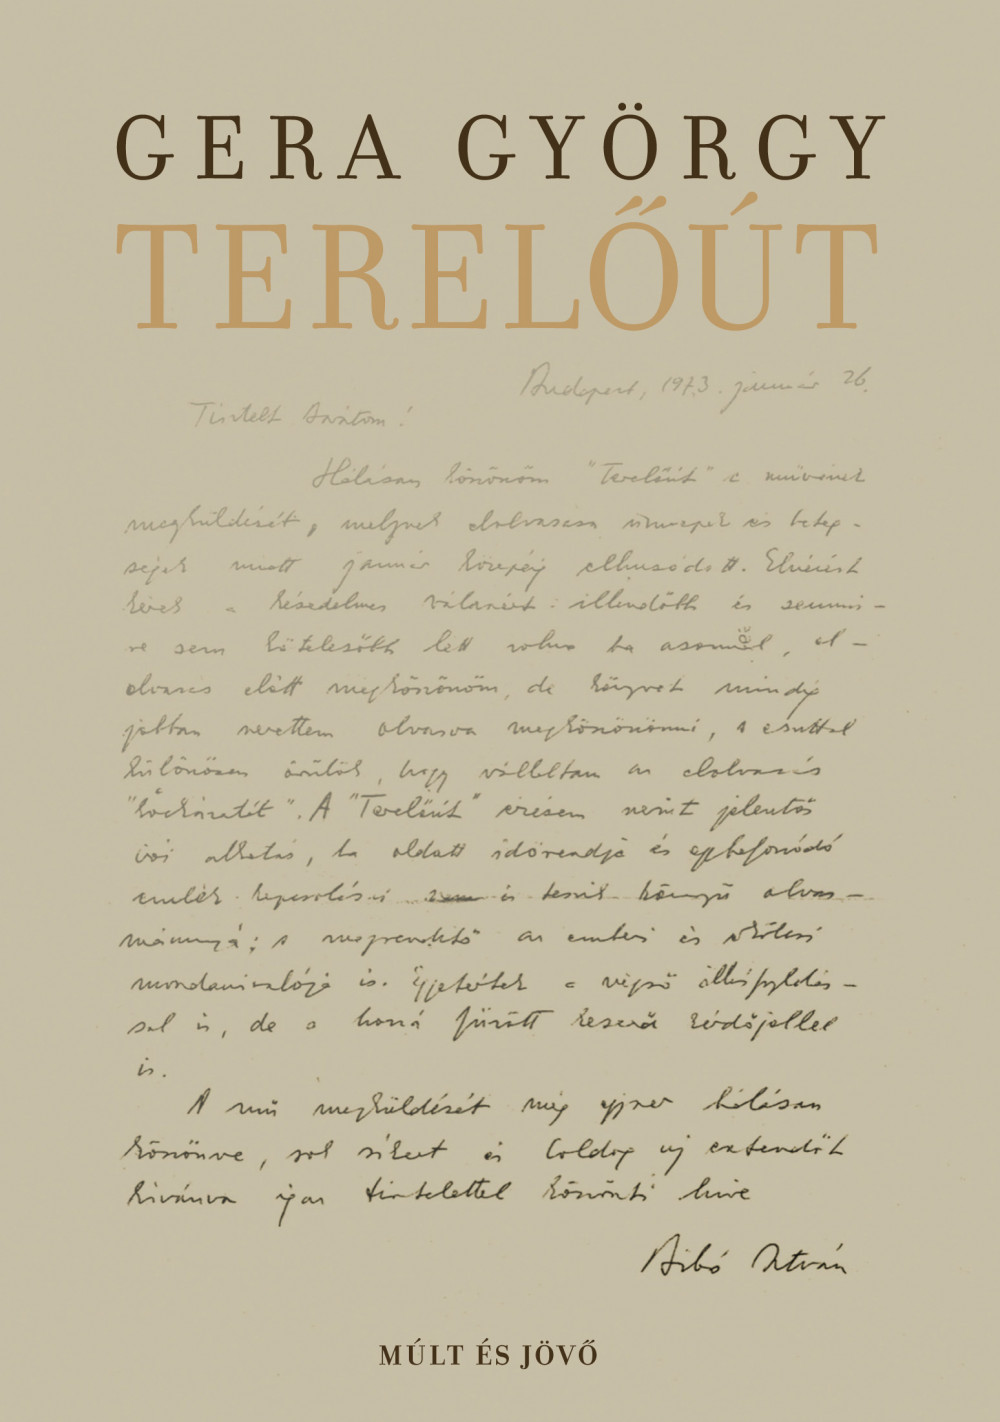 GERA GYÖRGY
TERELŐÚT
Budapest, 1973. január 26.
Tisztelt Barátom!
Hálásan köszönöm "Terelőút" c művének
megküldését, melynek elolvasása ünnepek és beteg-
ségek miatt január közepéig elhúzódott. Elnézést
kérek a késedelmes válaszért: illendőbb és semmi-
re sem kötelezőbb lett volna ha azonnal, el-
olvasás előtt megköszönöm, de könyvet mindig
jobban szerettem olvasva megköszönni, s ezúttal
különösen örülök, hogy vállaltam az elolvasás
"kockázatát". A "Terelőút" érésem szerint jelentős
írói alkotás, ha oldott időrendje és egybefonódó
emlék kapcsolásai nem is teszik könnyű olvas-
mánnyá; s megrendítő az emberi és erkölcsi
mondanivalója is. Egyetértek a végső állásfoglalás-
sal is, de a hozzá fűzött keserű kérdőjellel
is.
A mű megküldését még egyszer hálásan
köszönve, sok sikert és boldog új esztendőt
kívánva igaz tisztelettel köszönti híve
Bibó István
MÚLT ÉS JÖVŐ